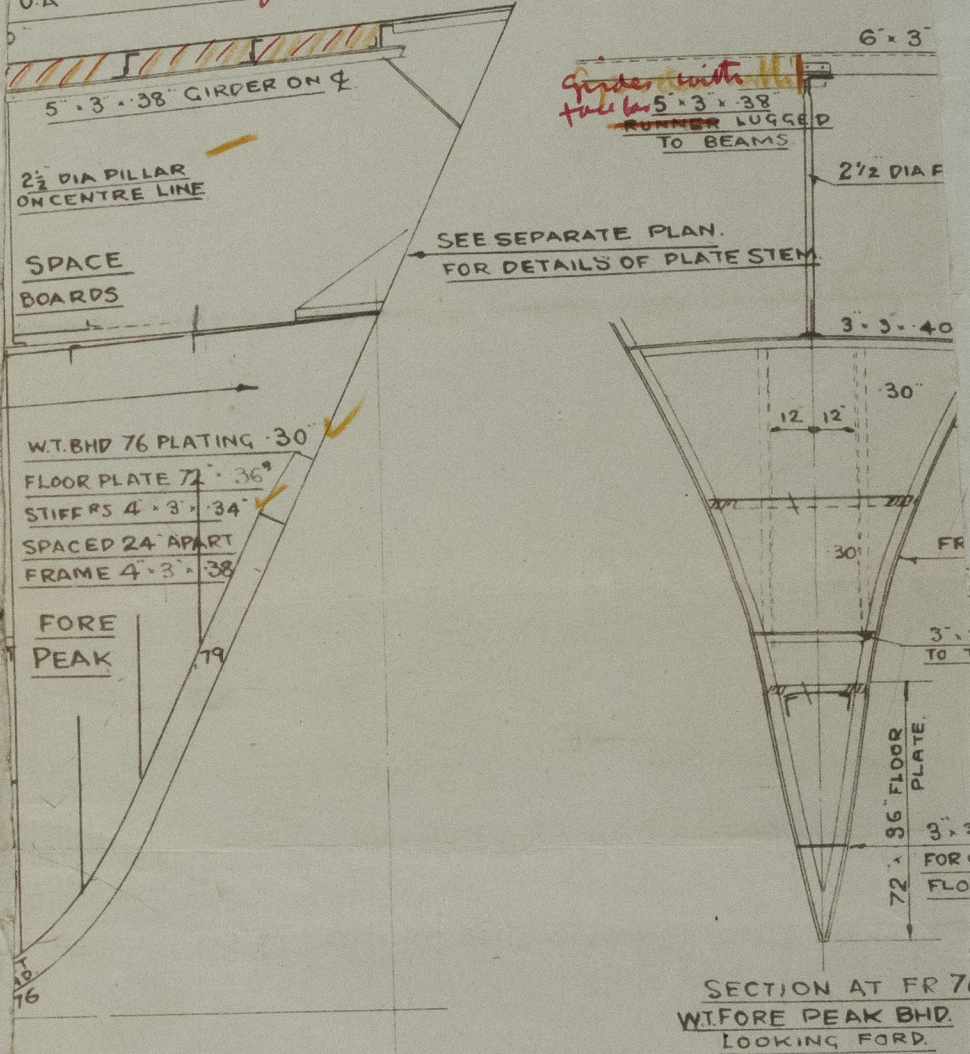 O.A
5" × 3" × .38" GIRDER ON ℄
2½" DIA PILLAR
ON CENTRE LINE
SPACE
BOARDS
SEE SEPARATE PLAN.
FOR DETAILS OF PLATE STEM.
W.T. BHD 76 PLATING .30"
FLOOR PLATE 72" × .36"
STIFFRS 4" × 3" × .34"
SPACED 24" APART
FRAME 4" × 3" × .38
FORE
PEAK
79
76
6" × 3"
Girder with
face bar 5" × 3" × .38"
RUNNER LUGGED
TO BEAMS.
2½" DIA
3" × 3" × .40
.30"
12" 12"
.30"
FR
3" ×
TO
72" × .36" FLOOR
PLATE.
3" × 3
FOR
FLO
SECTION AT FR 76
W.T. FORE PEAK BHD.
LOOKING FORD.